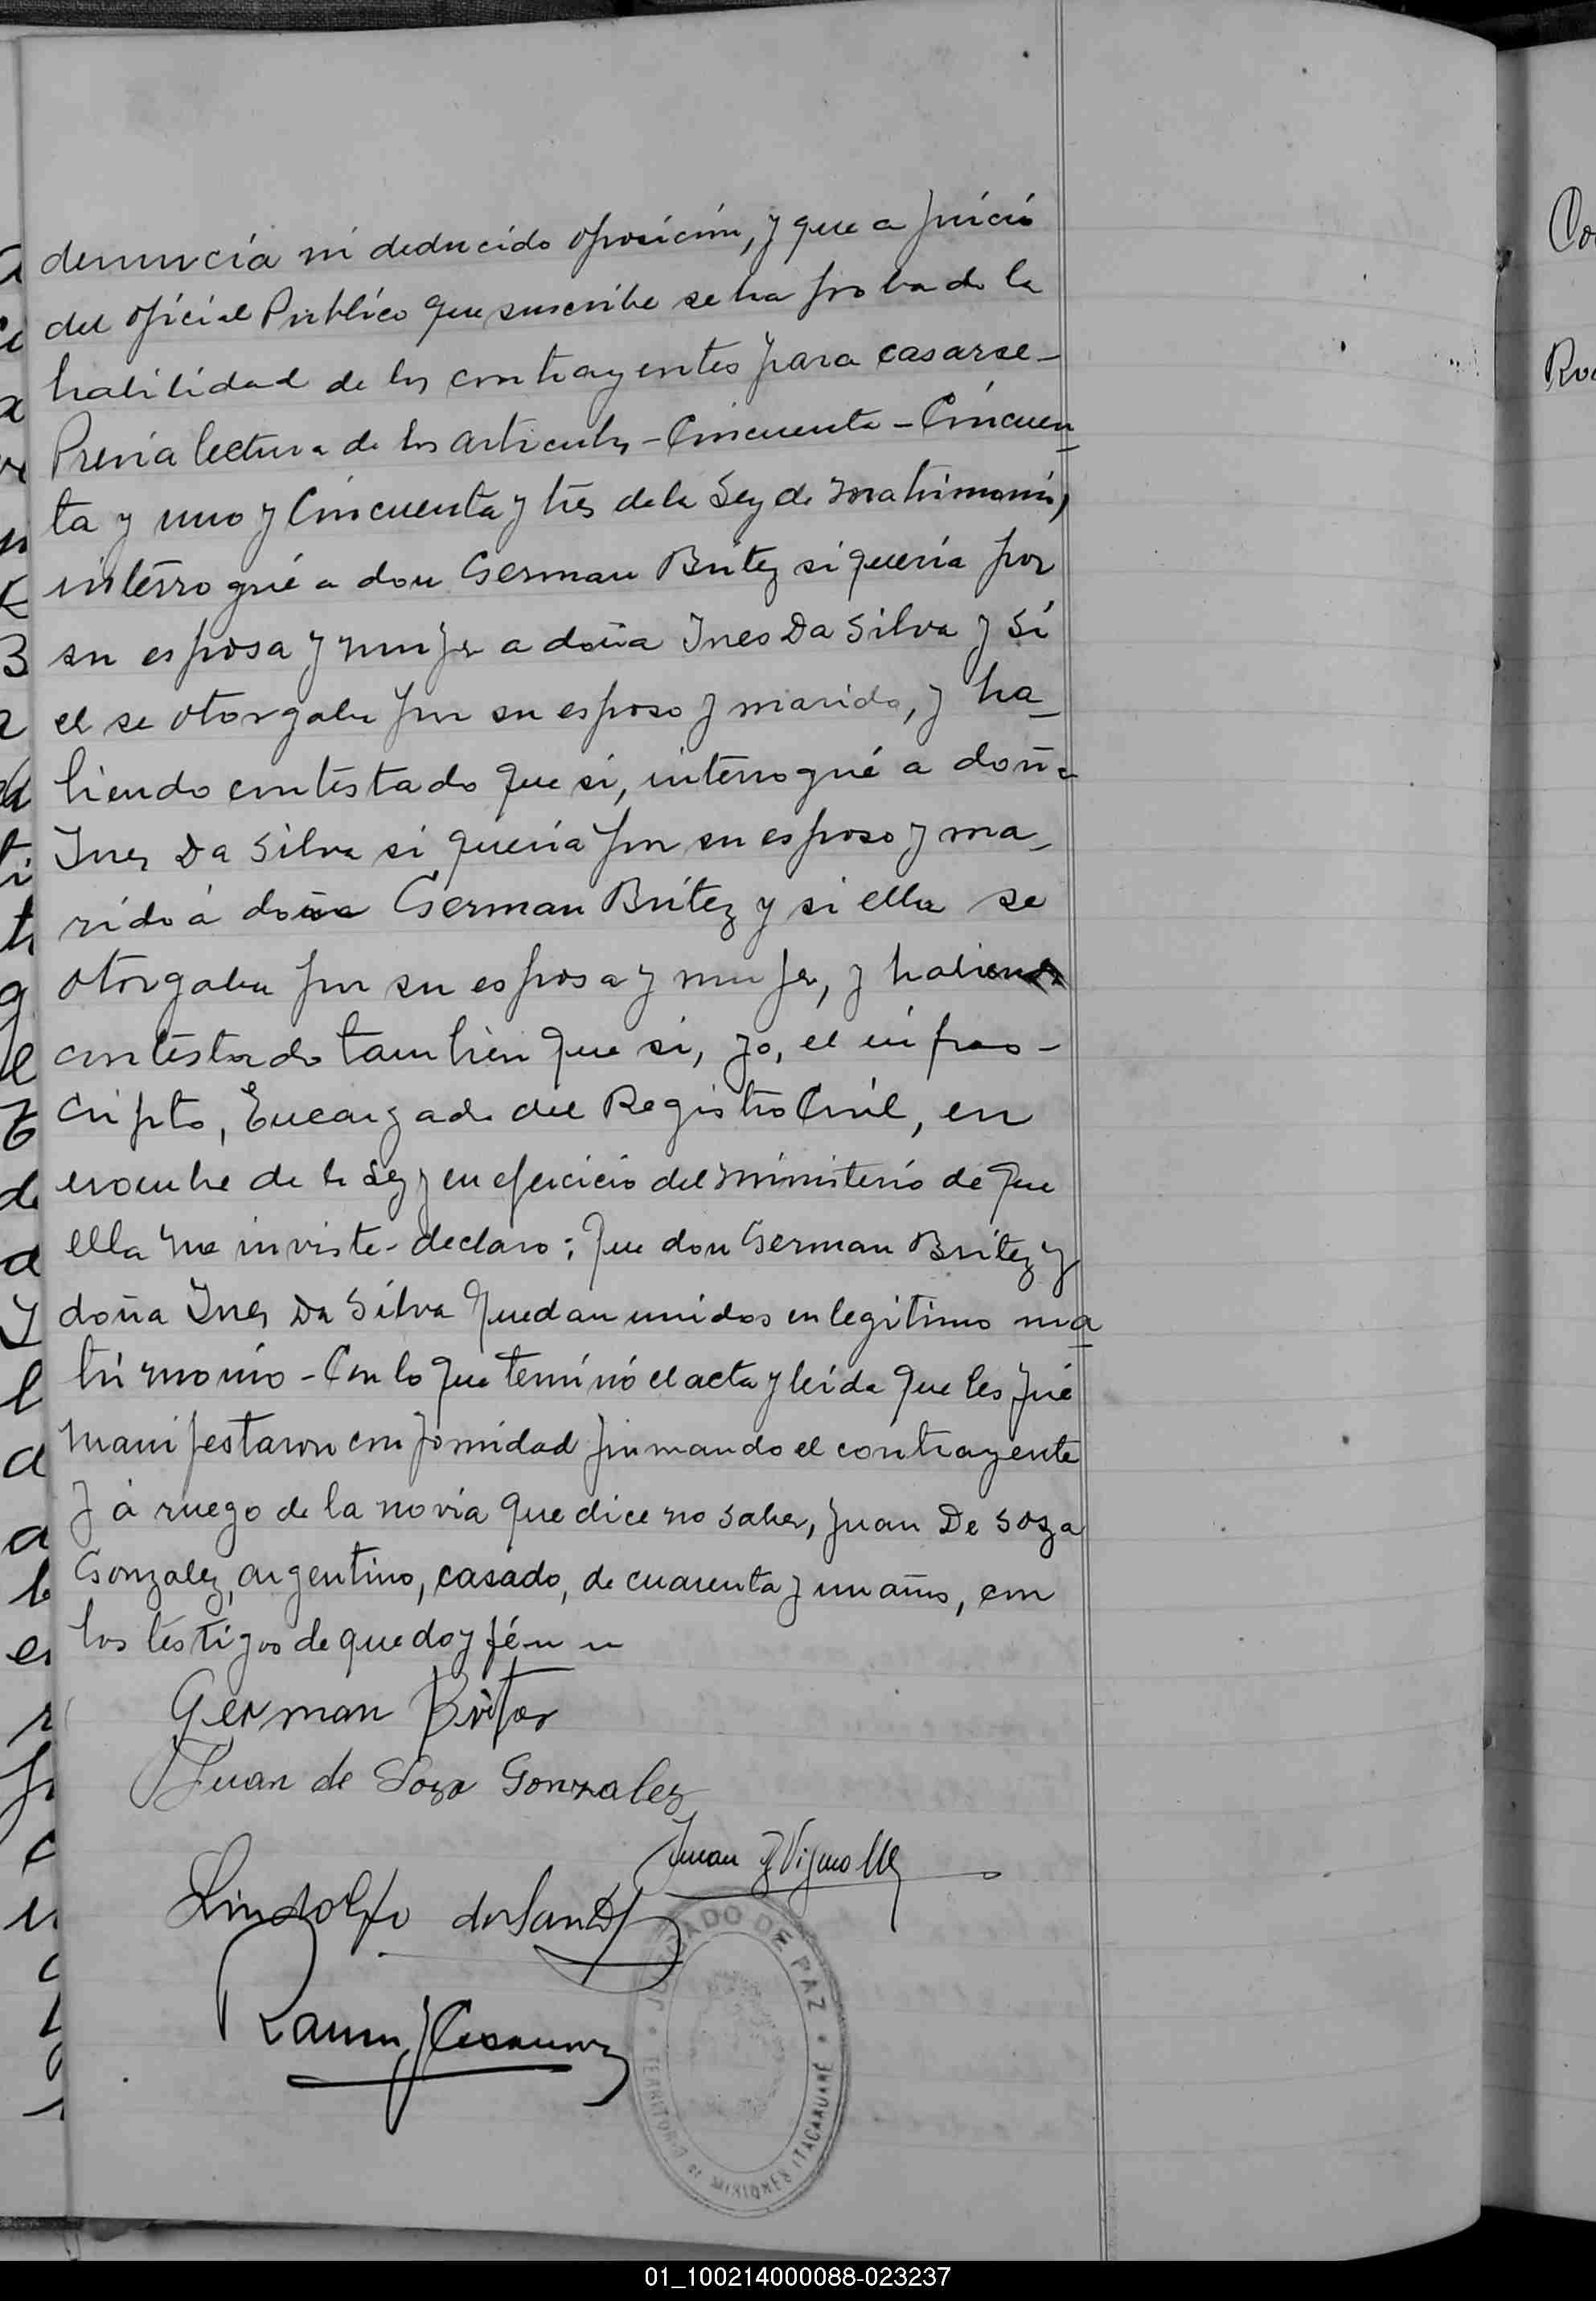 denuncia ni deducido oposición, y que a juicio
del oficial Publico que suscribe se ha probado la
habilidad de los contrayentes para casarse-
Previa lectura de los articulos - Cincuenta - Cincuen_
ta y uno y Cincuenta y tres de la Ley de Matrimonio,
interrogué a don German Britez si quería por
su esposa y mujer a doña Ines Da Silva y si
el se otorgaba por su esposo y marido, y ha_
biendo contestado que si, interrogué a doña
Ines Da Silva si quería por su esposo y ma_
rido á doña German Britez y si ella se
otorgaba por su esposa y mujer, y habiendo
contestado tambien que si, yo, el infras-
cripto, Encargado del Registro Civil, en
nombre de la Ley y en ejercicio del Ministerio de que
ella me inviste - declaro: Que don German Britez y
doña Ines Da Silva quedan unidos en legitimo ma_
trimonio - Con lo que terminó el acta y leida que les fué
manifestaron conformidad firmando el contrayente
y á ruego de la novia que dice no saber, Juan De Soza
Gonzalez, argentino, casado, de cuarenta y un años, con
los testigos de que doy fé
German Britez
Juan de Soza Gonzalez
Juan
Lindolfo dos Santos
Ramon
JUZGADO DE PAZ
TERRITORIO DE MISIONES ITACARUARÉ
Co
Ro
01_100214000088-023237